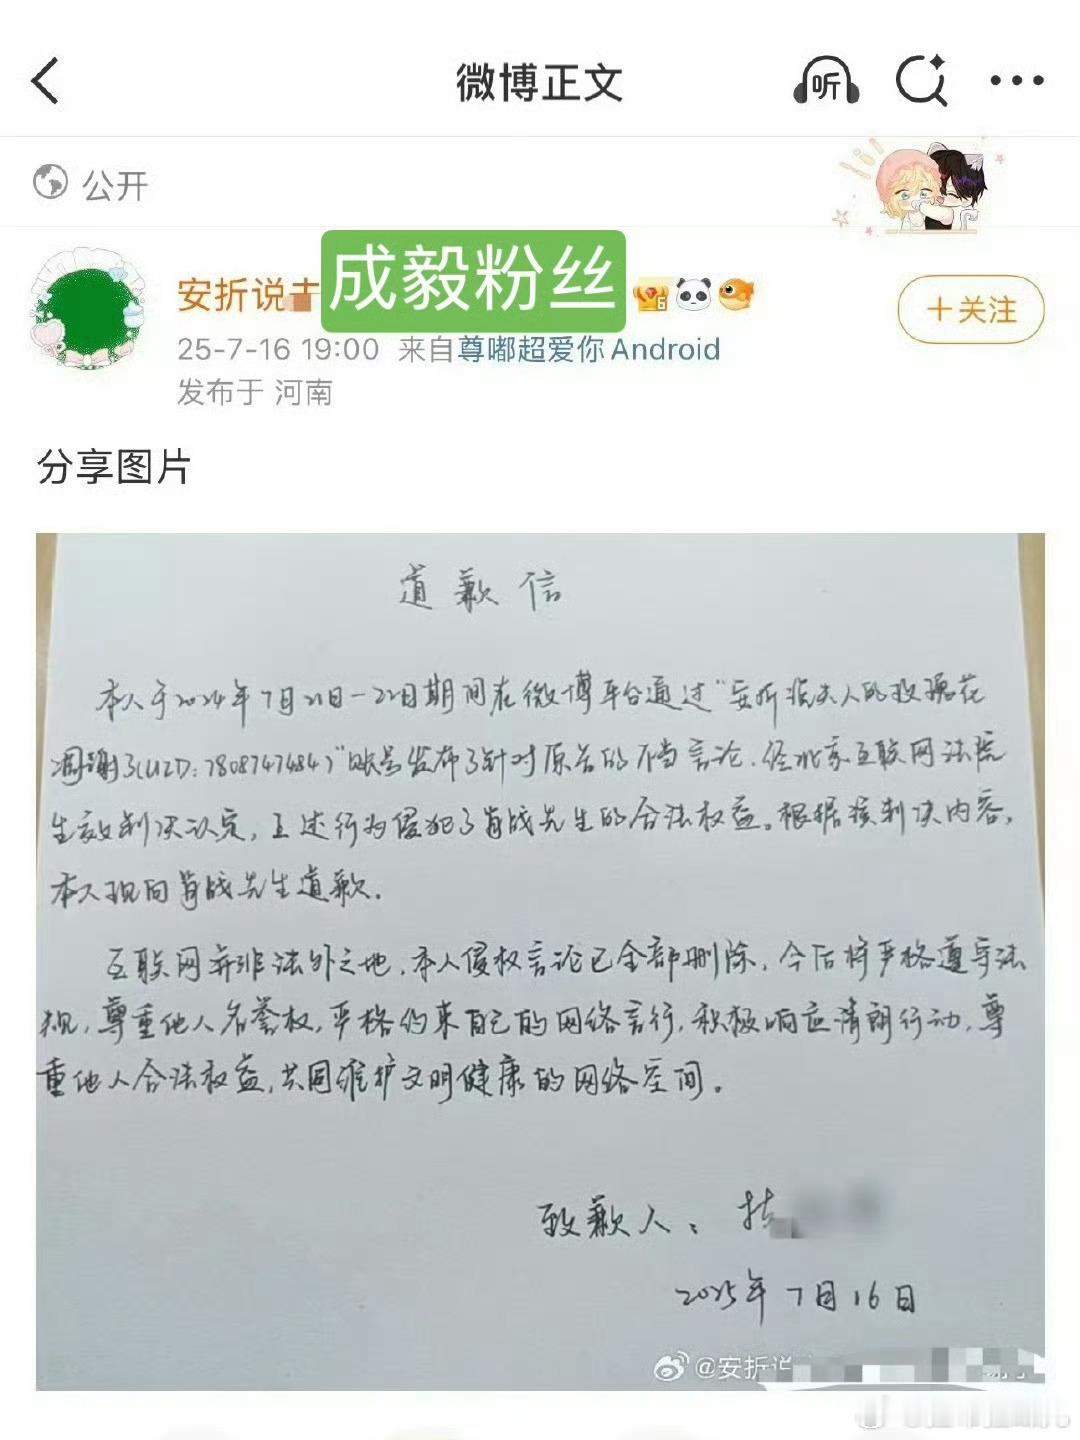 微博正文
听
公开
安折说
成毅粉丝
6
+关注
25-7-16 19:00 来自尊嘟超爱你Android
发布于 河南
分享图片
道歉信
本人于2024年7月21日-22日期间在微博平台通过“安折说夫人的玫瑰花
凋谢了(UID:7808747484)”账号发布了针对原告的不当言论,经北京互联网法院
生效判决认定,上述行为侵犯了肖战先生的合法权益。根据该判决内容,
本人现向肖战先生道歉.
互联网并非法外之地,本人侵权言论已全部删除,今后将严格遵守法
规,尊重他人名誉权,严格约束自己的网络言行,积极响应清朗行动,尊
重他人合法权益,共同维护文明健康的网络空间。
致歉人:
2025年7月16日
@安折说